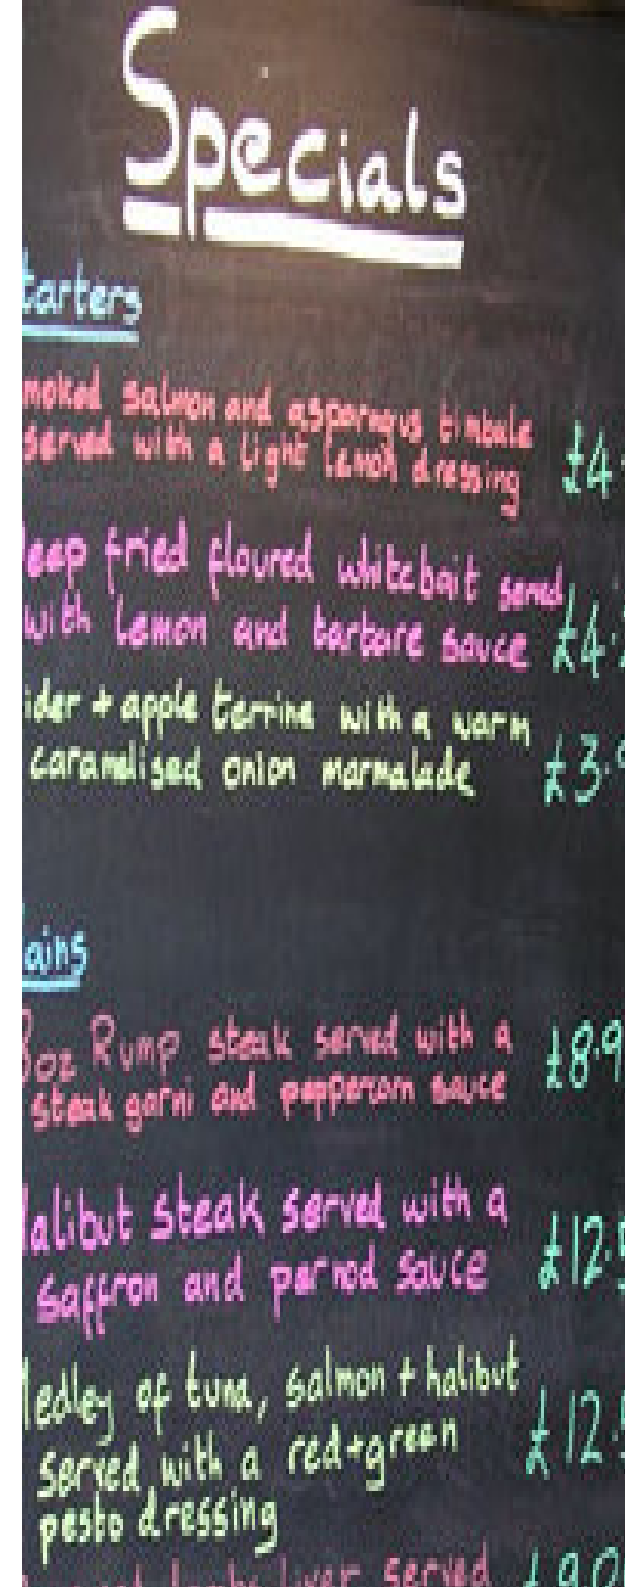 Specials
tarters
moked salmon and asparagus timbale
served with a light lemon dressing
£4.
eep fried floured whitebait served
with lemon and tartare sauce
£4.
ider + apple terrine with a warm
caramelised onion marmalade
£3.9
ains
8oz Rump steak served with a
steak garni and peppercorn sauce
£8.9
alibut steak served with a
saffron and pernod sauce
£12.5
edley of tuna, salmon + halibut
served with a red+green
pesto dressing
£12.5
lambs liver served
£9.0